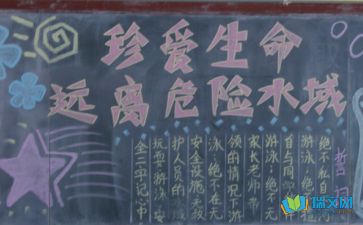 珍爱生命
远离危险水域
誓词
绝不私自
游泳:绝不
自与同学
游泳:绝不
家长老师带
领的情况下游
泳:绝不在无
安全设施无救
护人员的
玩耍游泳安
全二字记心中